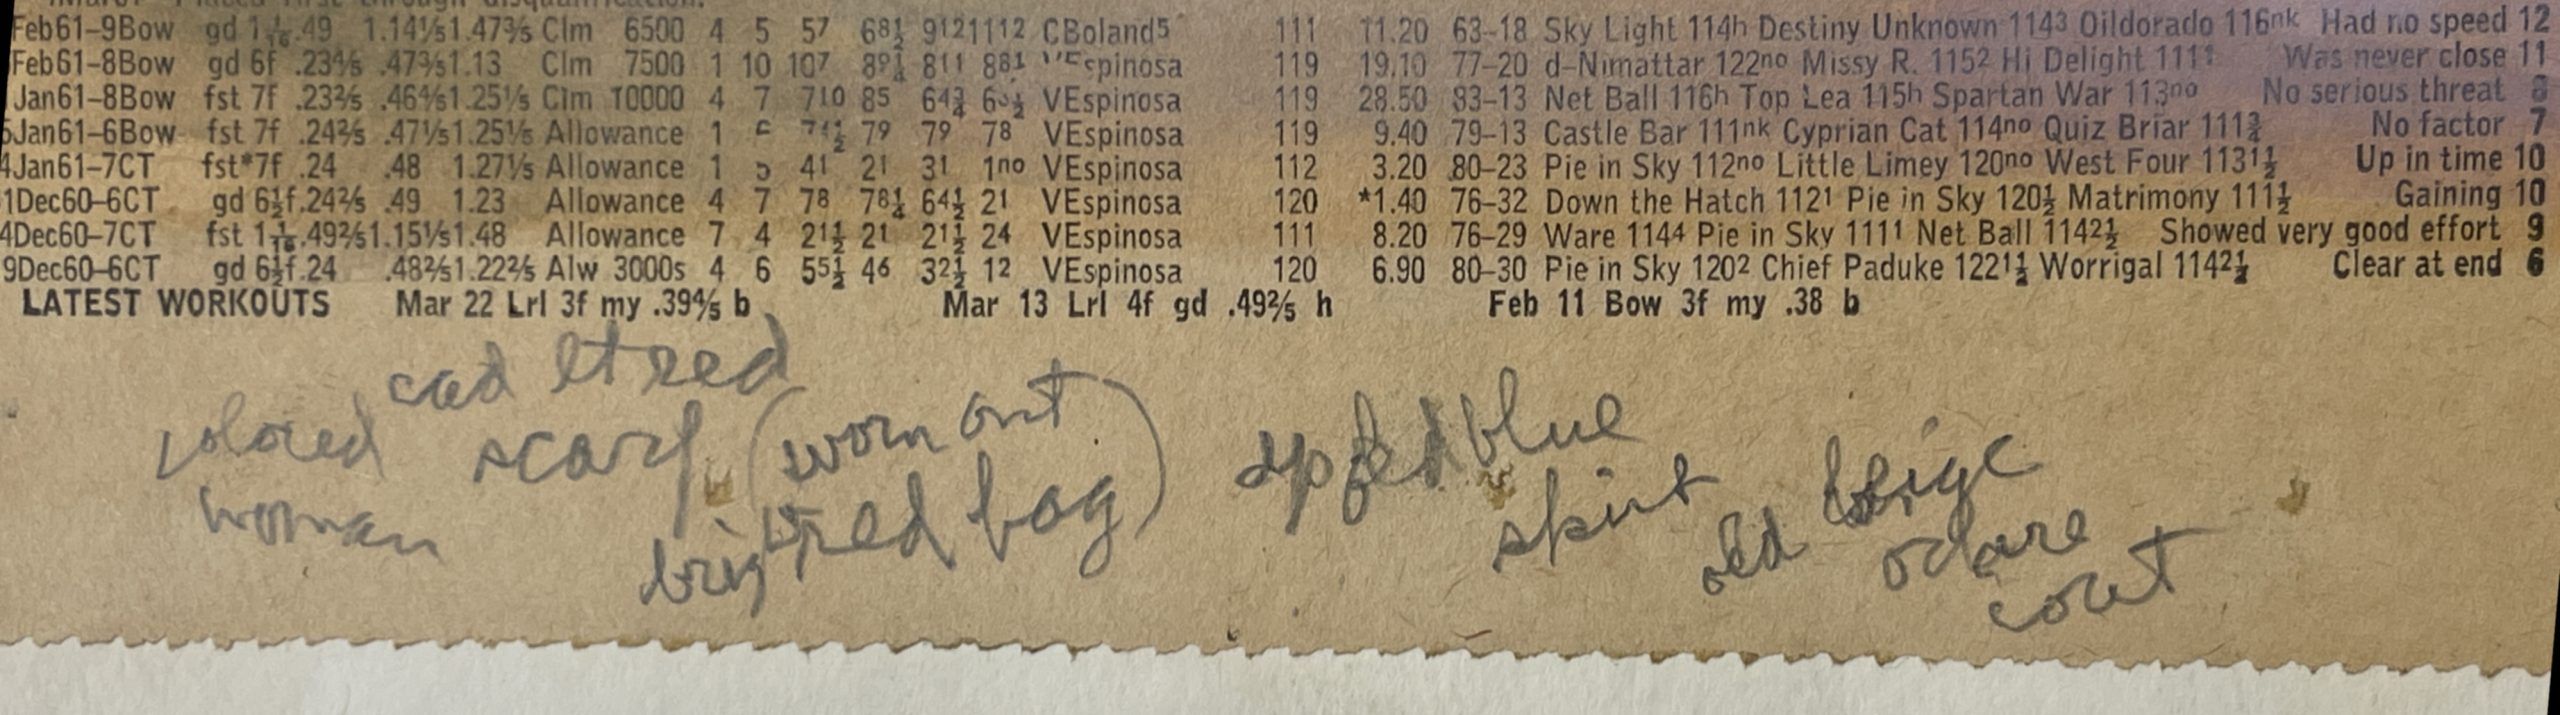 Feb61-9Bow gd 1 1/16 .49 1.14⅕ 1.47⅗ Clm 6500 4 5 5⁷ 6⁸½ 9¹² 11¹² CBoland⁵ 111 11.20 63-18 Sky Light 114ʰ Destiny Unknown 114³ Oildorado 116ⁿᵏ Had no speed 12
Feb61-8Bow gd 6f .23⅘ .47⅗ 1.13 Clm 7500 1 10 10⁷ 8⁹¼ 8¹¹ 8⁸¹ VEspinosa 119 19.10 77-20 d-Nimattar 122ⁿᵒ Missy R. 115² Hi Delight 111¹ Was never close 11
Jan61-8Bow fst 7f .23⅖ .46⅘ 1.25⅕ Clm 10000 4 7 7¹⁰ 8⁵ 6⁴¾ VEspinosa 119 28.50 83-13 Net Ball 116ʰ Top Lea 115ʰ Spartan War 113ⁿᵒ No serious threat 8
Jan61-6Bow fst 7f .24⅖ .47⅕ 1.25⅕ Allowance 1 7⁹ 7⁹ 7⁸ VEspinosa 119 9.40 79-13 Castle Bar 111ⁿᵏ Cyprian Cat 114ⁿᵒ Quiz Briar 111¾ No factor 7
4Jan61-7CT fst*7f .24 .48 1.27⅕ Allowance 1 5 4¹ 2¹ 3¹ 1ⁿᵒ VEspinosa 112 3.20 80-23 Pie in Sky 112ⁿᵒ Little Limey 120ⁿᵒ West Four 113¹½ Up in time 10
1Dec60-6CT gd 6½f .24⅖ .49 1.23 Allowance 4 7 7⁸ 7⁸¼ 6⁴½ 2¹ VEspinosa 120 *1.40 76-32 Down the Hatch 112¹ Pie in Sky 120½ Matrimony 111½ Gaining 10
4Dec60-7CT fst 1 1/16 .49⅖ 1.15⅕ 1.48 Allowance 7 4 2¹½ 2¹ 2¹½ 2⁴ VEspinosa 111 8.20 76-29 Ware 114⁴ Pie in Sky 111¹ Net Ball 114²½ Showed very good effort 9
9Dec60-6CT gd 6½f .24 .48⅖ 1.22⅖ Alw 3000s 4 6 5⁵½ 4⁶ 3²½ 1² VEspinosa 120 6.90 80-30 Pie in Sky 120² Chief Paduke 122¹½ Worrigal 114²½ Clear at end 6
LATEST WORKOUTS Mar 22 Lrl 3f my .39⅘ b Mar 13 Lrl 4f gd .49⅖ h Feb 11 Bow 3f my .38 b
colored woman
lt red scarf
(worn out
bri red bag)
blue skirt
old beige
coat